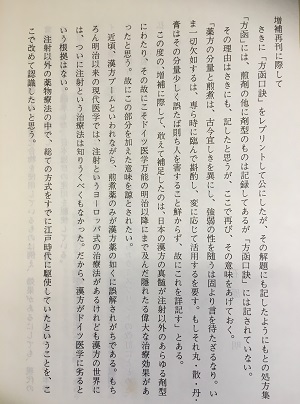 増補再刊に際して
さきに「方函口訣」をレプリントして公にしたが、その解題にも記したようにもとの処方集
「方函」には、煎剤の他に剤型のものは記録してあるが「方函口訣」には記されていない。
その理由はさきにも、記したと思うが、ここで再び、その意味をあげておく。
「薬方の分量と煎煮は、古今宜しきを異にし、強弱の性を随うは固より言を待たざるなり。い
ま一切欠如するは、専ら時に臨んで斟酌し、変に応じて活用するを要す。もしそれ丸、散、丹、
膏はその分量少しく誤たば則ち人を害すること鮮からず、故にこれを詳記す」とある。
この度の、増補に際して、敢えて補足したのは、日本の漢方の真髄が注射以外のあらゆる剤型
にわたり、その故にこそドイツ医学万能の明治以降にまで及んだ隠れたる偉大な治療効果があ
ったと思う。故にこの部分を加えた意味を諒とされたい。
近頃、漢方ブームといわれながら、煎煮薬のみが漢方薬の如くに誤解されがちである。もち
ろん明治以来の現代医学では、注射というヨーロッパ式の治療法があるけれども漢方の世界に
は、ついに注射という治療法は知りうべくもなかった。だから、漢方がドイツ医学に劣ると
いう根拠はない。
注射以外の薬物療法の中で、総ての方式をすでに江戸時代に駆使していたということを、こ
こで改めて認識したいと思う。